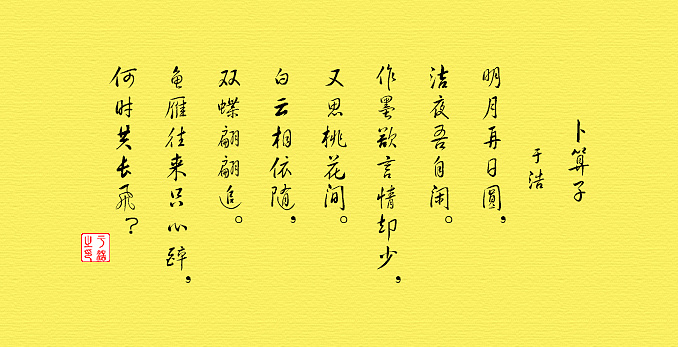 卜算子
于浩
明月再日圆，
洁夜吾自闲。
作墨欲言情却少，
又思桃花涧。
白云相依随，
双蝶翩翩追。
鱼雁往来只心碎，
何时共长飞？
于浩之印